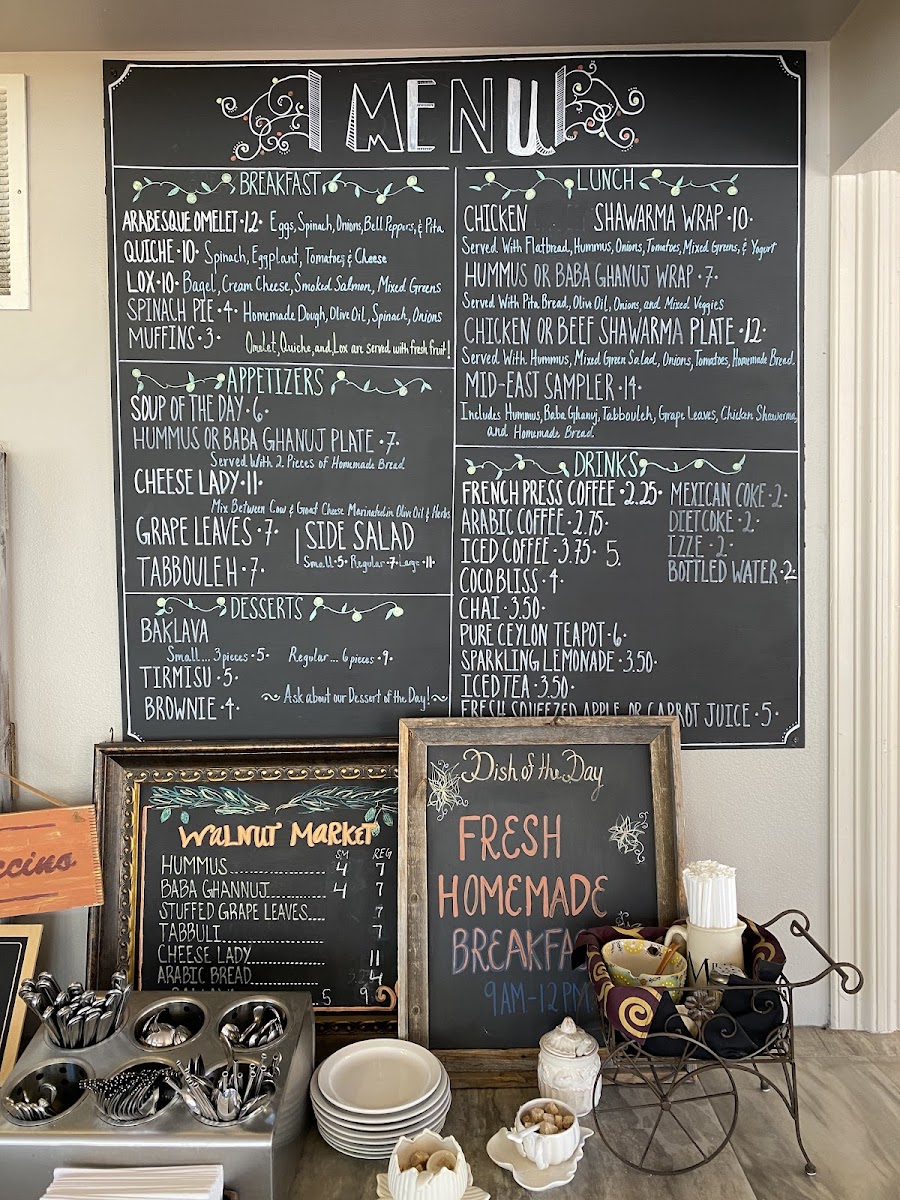 MENU
BREAKFAST
ARABESQUE OMELET • 12 • Eggs, Spinach, Onions, Bell Peppers, & Pita
QUICHE • 10 • Spinach, Eggplant, Tomatoes, & Cheese
LOX • 10 • Bagel, Cream Cheese, Smoked Salmon, Mixed Greens
SPINACH PIE • 4 • Homemade Dough, Olive Oil, Spinach, Onions
MUFFINS • 3 •
Omelet, Quiche, and Lox are served with fresh fruit!
APPETIZERS
SOUP OF THE DAY • 6 •
HUMMUS OR BABA GHANUJ PLATE • 7 •
Served With 2 Pieces of Homemade Bread
CHEESE LADY • 11 •
Mix Between Cow & Goat Cheese Marinated in Olive Oil & Herbs
GRAPE LEAVES • 7 •
TABBOULEH • 7 •
SIDE SALAD
Small • 5 • Regular • 7 • Large • 11 •
DESSERTS
BAKLAVA
Small... 3 pieces • 5 • Regular... 6 pieces • 9 •
TIRMISU • 5 •
BROWNIE • 4 •
Ask about our Dessert of the Day!
LUNCH
CHICKEN SHAWARMA WRAP • 10 •
Served With Flatbread, Hummus, Onions, Tomatoes, Mixed Greens, & Yogurt
HUMMUS OR BABA GHANUJ WRAP • 7 •
Served With Pita Bread, Olive Oil, Onions, and Mixed Veggies
CHICKEN OR BEEF SHAWARMA PLATE • 12 •
Served With Hummus, Mixed Green Salad, Onions, Tomatoes, Homemade Bread
MID-EAST SAMPLER • 14 •
Includes Hummus, Baba Ghanuj, Tabbouleh, Grape Leaves, Chicken Shawarma,
and Homemade Bread
DRINKS
FRENCH PRESS COFFEE • 2.25 •
ARABIC COFFEE • 2.75 •
ICED COFFEE • 3.75 • 5.
COCO BLISS • 4 •
CHAI • 3.50 •
PURE CEYLON TEAPOT • 6 •
SPARKLING LEMONADE • 3.50 •
ICED TEA • 3.50 •
FRESH SQUEEZED APPLE OR CARROT JUICE • 5 •
MEXICAN COKE • 2 •
DIET COKE • 2 •
IZZE • 2 •
BOTTLED WATER • 2
ccino
WALNUT MARKET
SM REG
HUMMUS 4 7
BABA GHANNUJ 4 7
STUFFED GRAPE LEAVES 7
TABBULI 7
CHEESE LADY 11
ARABIC BREAD 4
5 9
Dish of the Day
FRESH
HOMEMADE
BREAKFA
9AM-12PM